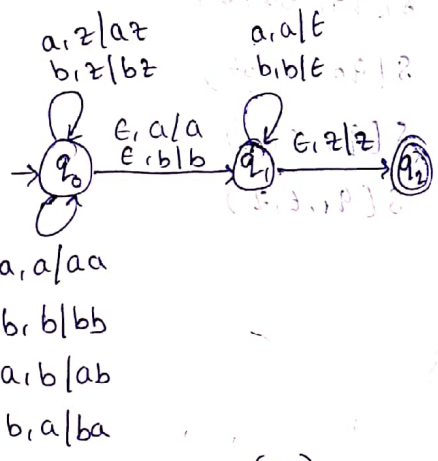 a, z/az
b, z/bz
a, a/ε
b, b/ε
ε, a/a
ε, b/b
ε, z/z
q₀
q₁
q₂
a, a/aa
b, b/bb
a, b/ab
b, a/ba